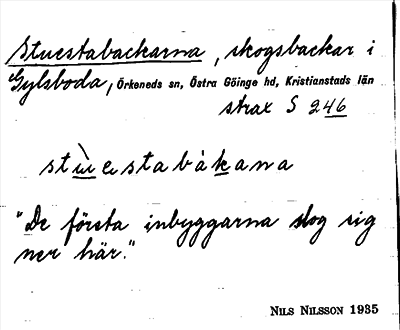 Stuestabackarna, skogsbackar i
Gylsboda, Örkeneds sn, Östra Göinge hd, Kristianstads län
strax S 246
stùestabàkana
"De första inbyggarna slog sig
ner här."
NILS NILSSON 1935